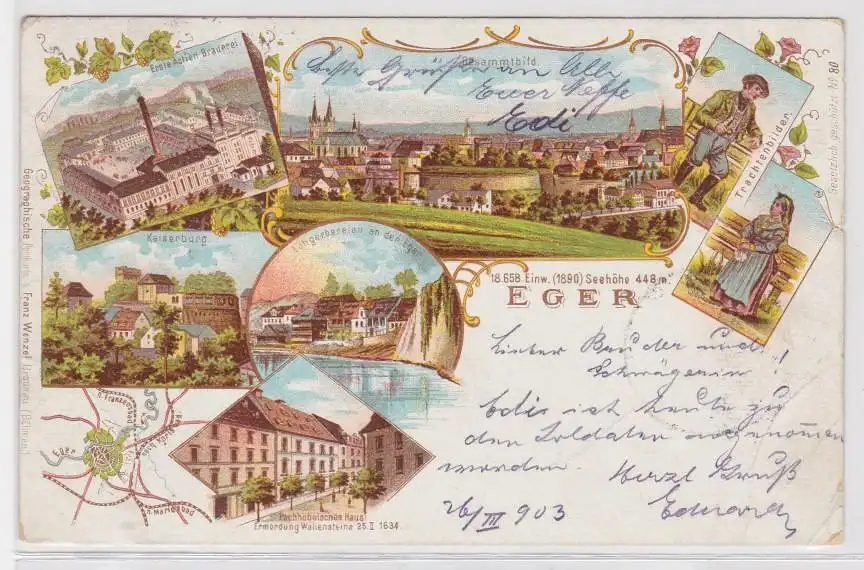 Erste Actien Brauerei.
Gesammtbild.
Beste Grüße an Alle
Euer Neffe
Edi
Trachtenbilder.
Gesetzlich geschützt No 80
Kaiserburg.
Lohgerbereien an der Eger
18.658 Einw. (1890) Seehöhe 448 m.
EGER
Lieber Bruder und
Schwägerin!
Edi ist heute zu
den Soldaten angenommen
worden. Herzl Gruß
26/III 903 Eduard
n. Franzensbad
Eger
nach Karlsbad.
n. Marienbad
Pachhebelsches Haus
Ermordung Wallensteins 25.II 1634.
Geographische Postkarte v. Franz Wenzel (Böhmen)